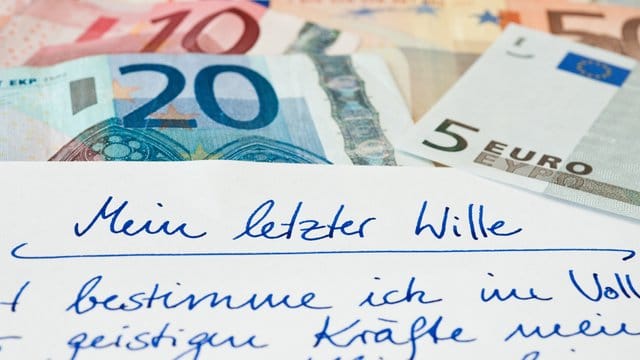 10
50
EKP ΕΚΤ
20
5 EURO
ΕΥΡΩ
Mein letzter Wille
bestimme ich im Voll
geistigen Kräfte mein